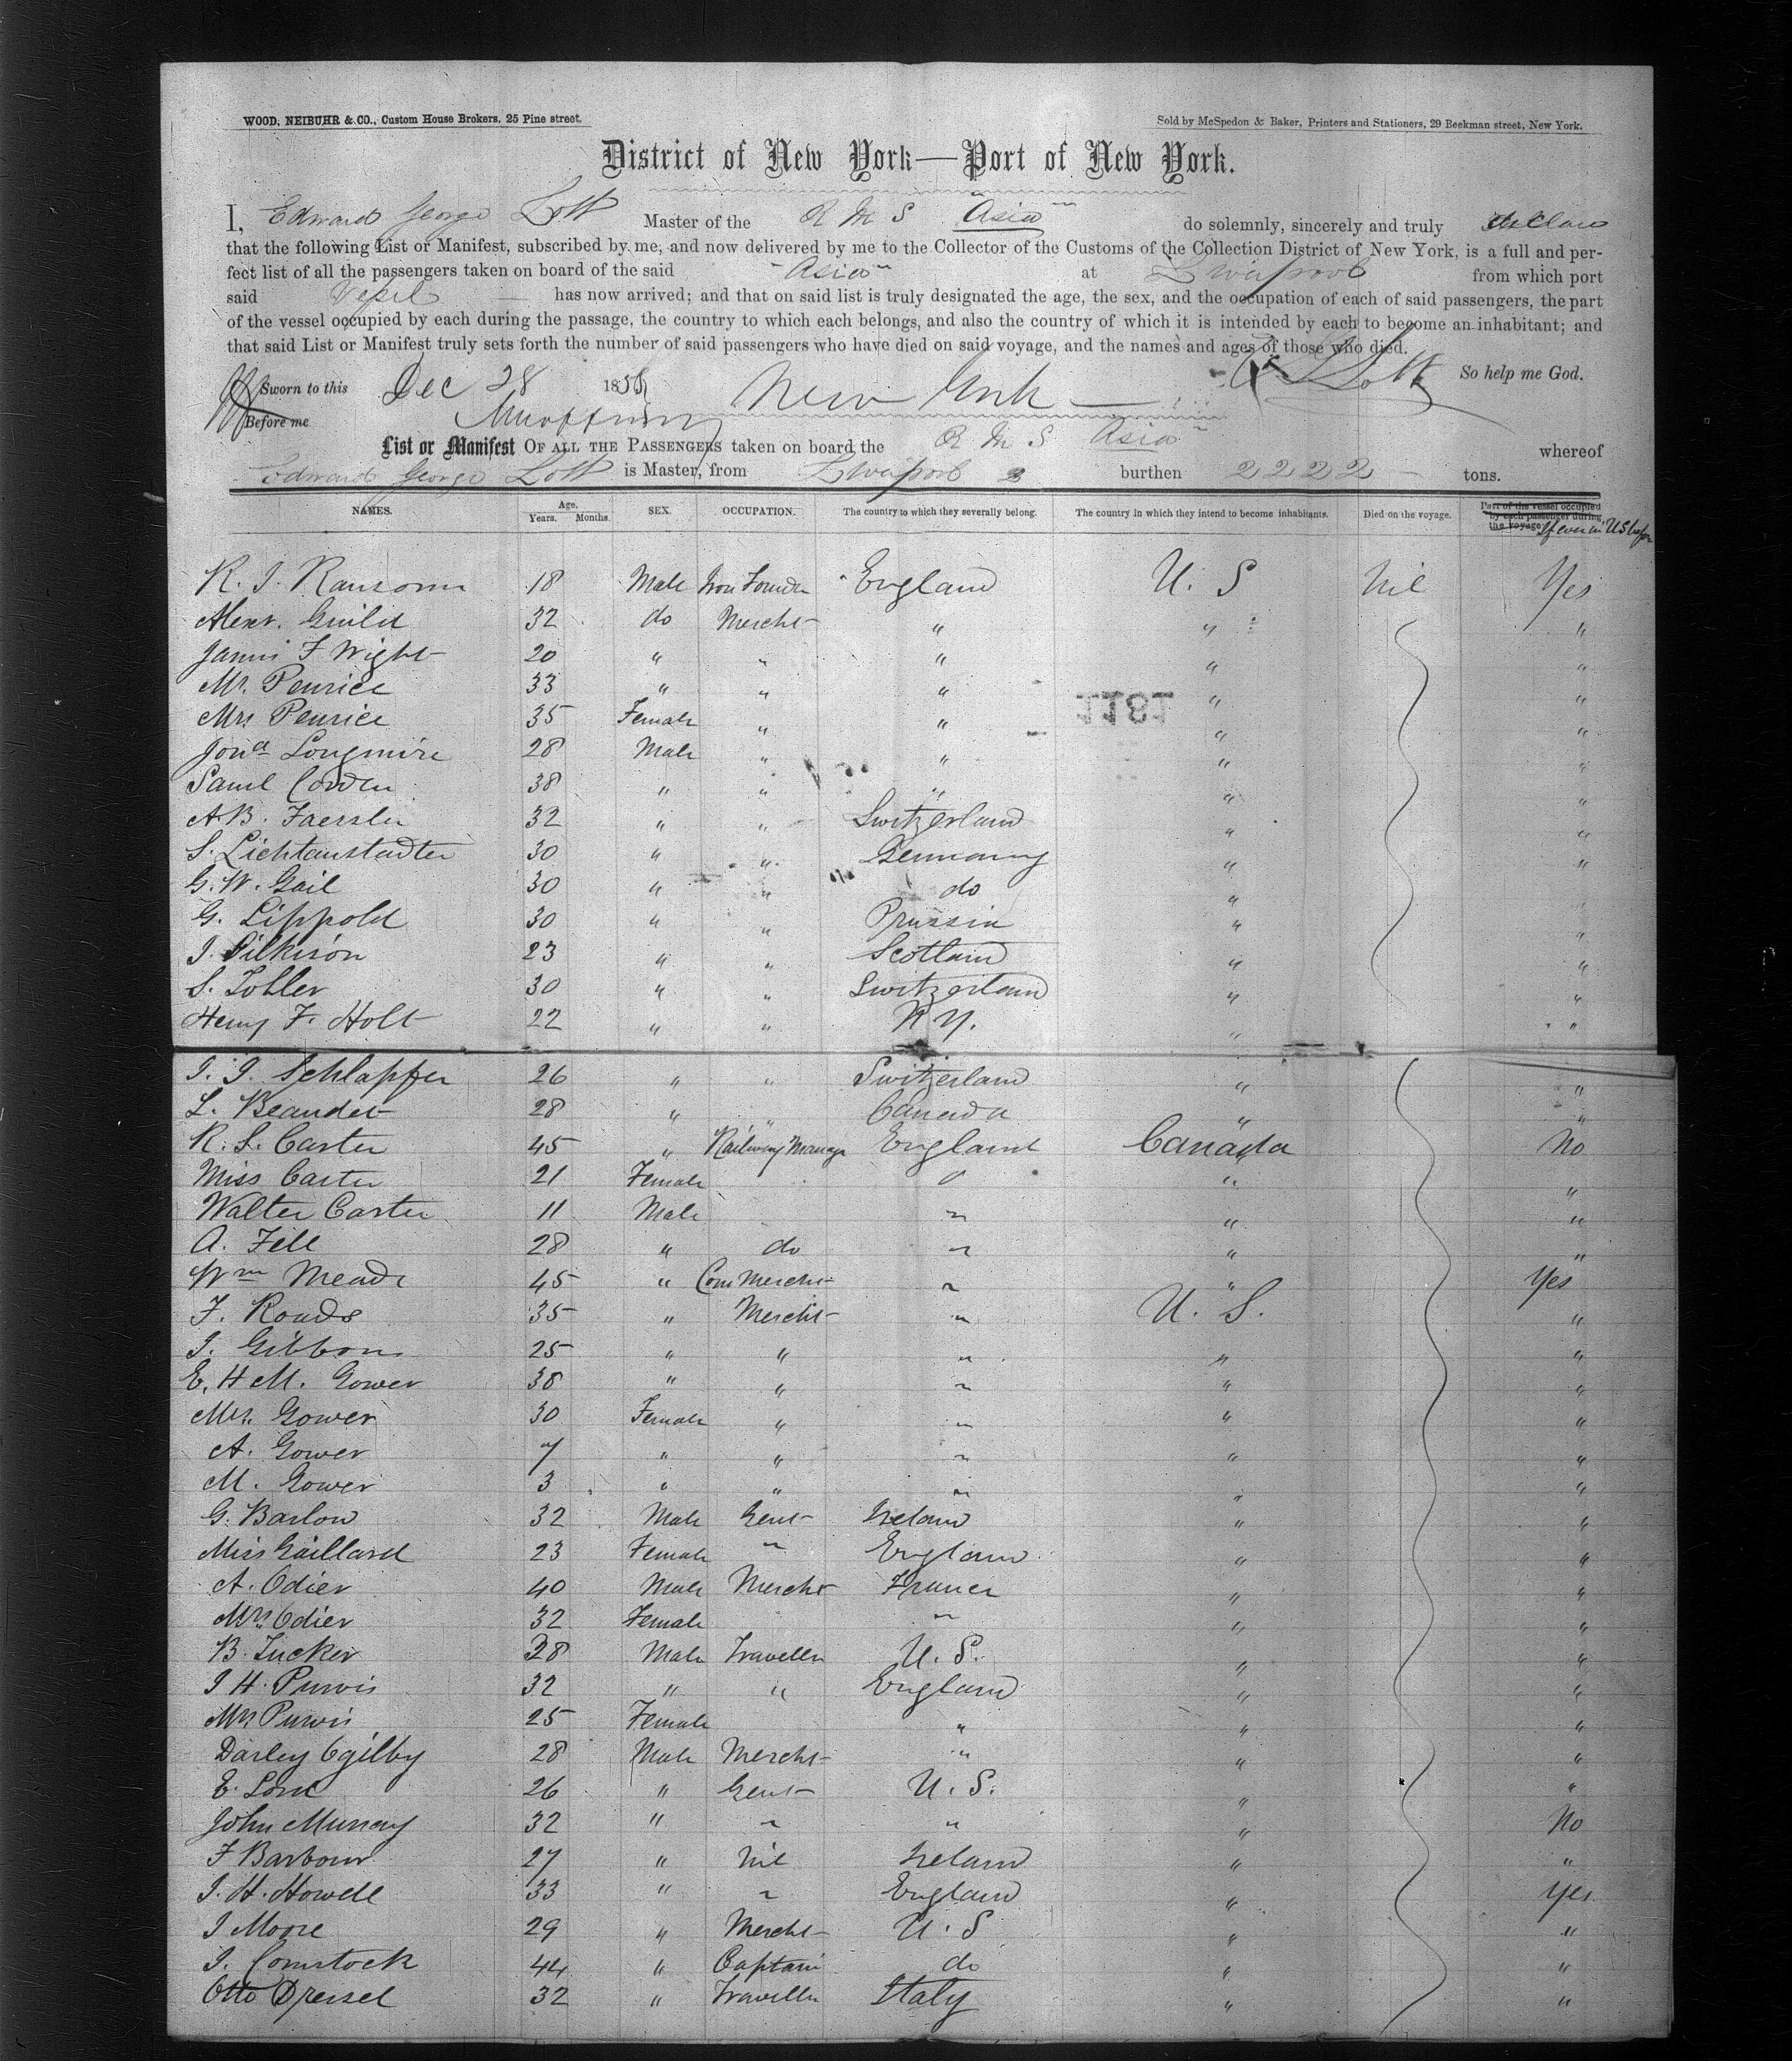 WOOD, NEIBUHR & CO., Custom House Brokers, 25 Pine street.
Sold by McSpedon & Baker, Printers and Stationers, 29 Beekman street, New York.
District of New York—Port of New York.
I, Edward George Lott Master of the R M S "Asia" do solemnly, sincerely and truly declare
that the following List or Manifest, subscribed by me, and now delivered by me to the Collector of the Customs of the Collection District of New York, is a full and per-
fect list of all the passengers taken on board of the said "Asia" at Liverpool from which port
said Vessel has now arrived; and that on said list is truly designated the age, the sex, and the occupation of each of said passengers, the part
of the vessel occupied by each during the passage, the country to which each belongs, and also the country of which it is intended by each to become an inhabitant; and
that said List or Manifest truly sets forth the number of said passengers who have died on said voyage, and the names and ages of those who died.
Sworn to this Dec 28 185 New York Lott So help me God.
Before me
List or Manifest OF ALL THE PASSENGERS taken on board the R M S Asia" whereof
Edward George Lott is Master, from Liverpool burthen 2222 tons.
NAMES. Age. Years. Months. SEX. OCCUPATION. The country to which they severally belong. The country in which they intend to become inhabitants. Died on the voyage. Part of the vessel occupied by each passenger during the voyage If ever in US before
R. J. Ransom 18 Male Iron Founder England U. S Nil Yes
Alexr. Guild 32 do Mercht " " "
James F Wight 20 " " " " "
Mr. Penrice 33 " " " " "
1181
Mrs Penrice 35 Female " " " "
Jona Longmire 28 Male " " " "
Saml Cowden 38 " " " " "
A.B. Faersler 32 " " Switzerland " "
S. Lichtanstadter 30 " " Germany " "
G. W. Gail 30 " " do "
G. Lippold 30 " " Prussia " "
J. Pilkison 23 " " Scotland " "
S. Tobler 30 " " Switzerland " "
Henry F. Holt 22 " " N Y. " "
J. J. Schlapfer 26 " " Switzerland " "
L. Beaudet 28 " " Canada " "
R. S. Carter 45 " Railway Manage England Canada No
Miss Carter 21 Female " " "
Walter Carter 11 Male " " "
A. Fell 28 " do " " "
Wm Meade 45 " Com Mercht " " Yes
F. Roads 35 " Mercht " U. S. "
J. Gibbons 25 " " " " "
E. H M. Gower 38 " " " " "
Mrs. Gower 30 Female " " " "
A. Gower 7 " " " " "
M. Gower 3 " " " " "
G. Barlow 32 Male Gent Ireland " "
Miss Gaillard 23 Female " England " "
A. Odier 40 Male Mercht France " "
Mrs. Odier 32 Female " " "
B. Tucker 28 Male Traveller U. S. " "
J H. Purvis 32 " " England " "
Mrs Purvis 25 Female " " "
Darley Ogilby 28 Male Mercht " " "
E. Lord 26 " Gent U. S. " "
John Murray 32 " " " " No
F Barbour 27 " Nil Ireland " "
J. H. Howell 33 " " England " Yes
J Moore 29 " Mercht U. S " "
J. Comstock 44 " Captain do " "
Otto Dressel 32 " Traveller Italy " "